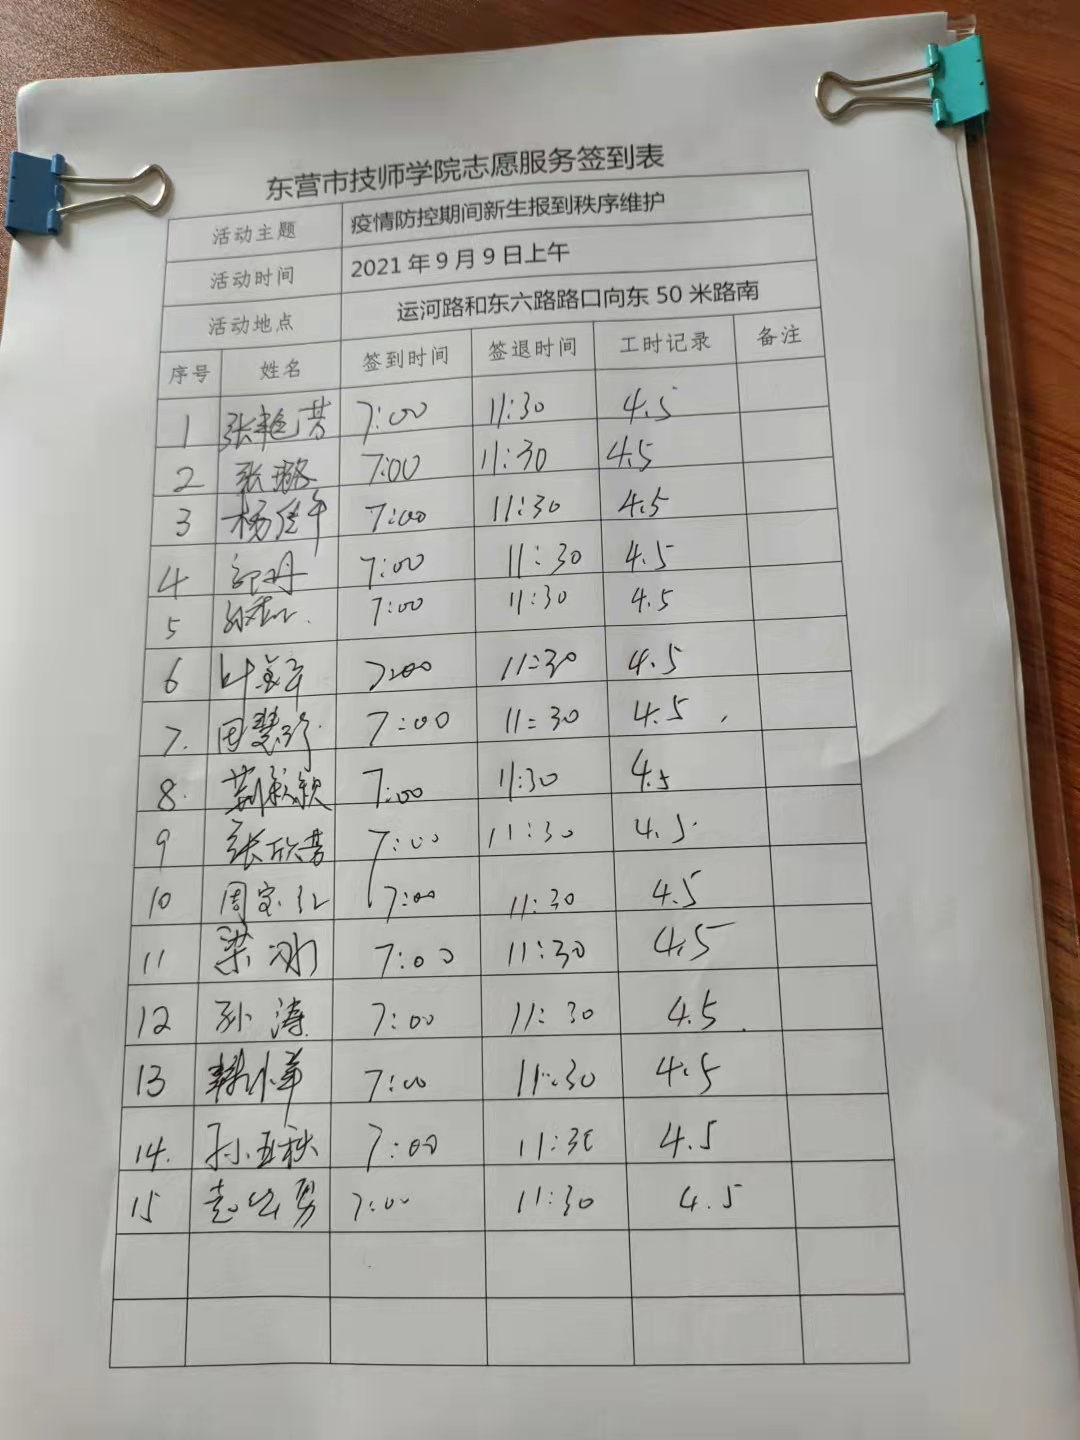 东营市技师学院志愿服务签到表
活动主题 疫情防控期间新生报到秩序维护
活动时间 2021年9月9日上午
活动地点 运河路和东六路路口向东50米路南
序号 姓名 签到时间 签退时间 工时记录 备注
1 张艳芳 7:00 11:30 4.5
2 张璐 7:00 11:30 4.5
3 杨 7:00 11:30 4.5
4 7:00 11:30 4.5
5 7:00 11:30 4.5
6 叶 7:00 11:30 4.5
7. 田慧 7:00 11:30 4.5
8. 7:00 11:30 4.5
9 张欣芳 7:00 11:30 4.5
10 周宝红 7:00 11:30 4.5
11 梁冰 7:00 11:30 4.5
12 孙涛 7:00 11:30 4.5
13 韩小苹 7:00 11:30 4.5
14. 孙亚秋 7:00 11:30 4.5
15 勇 7:00 11:30 4.5